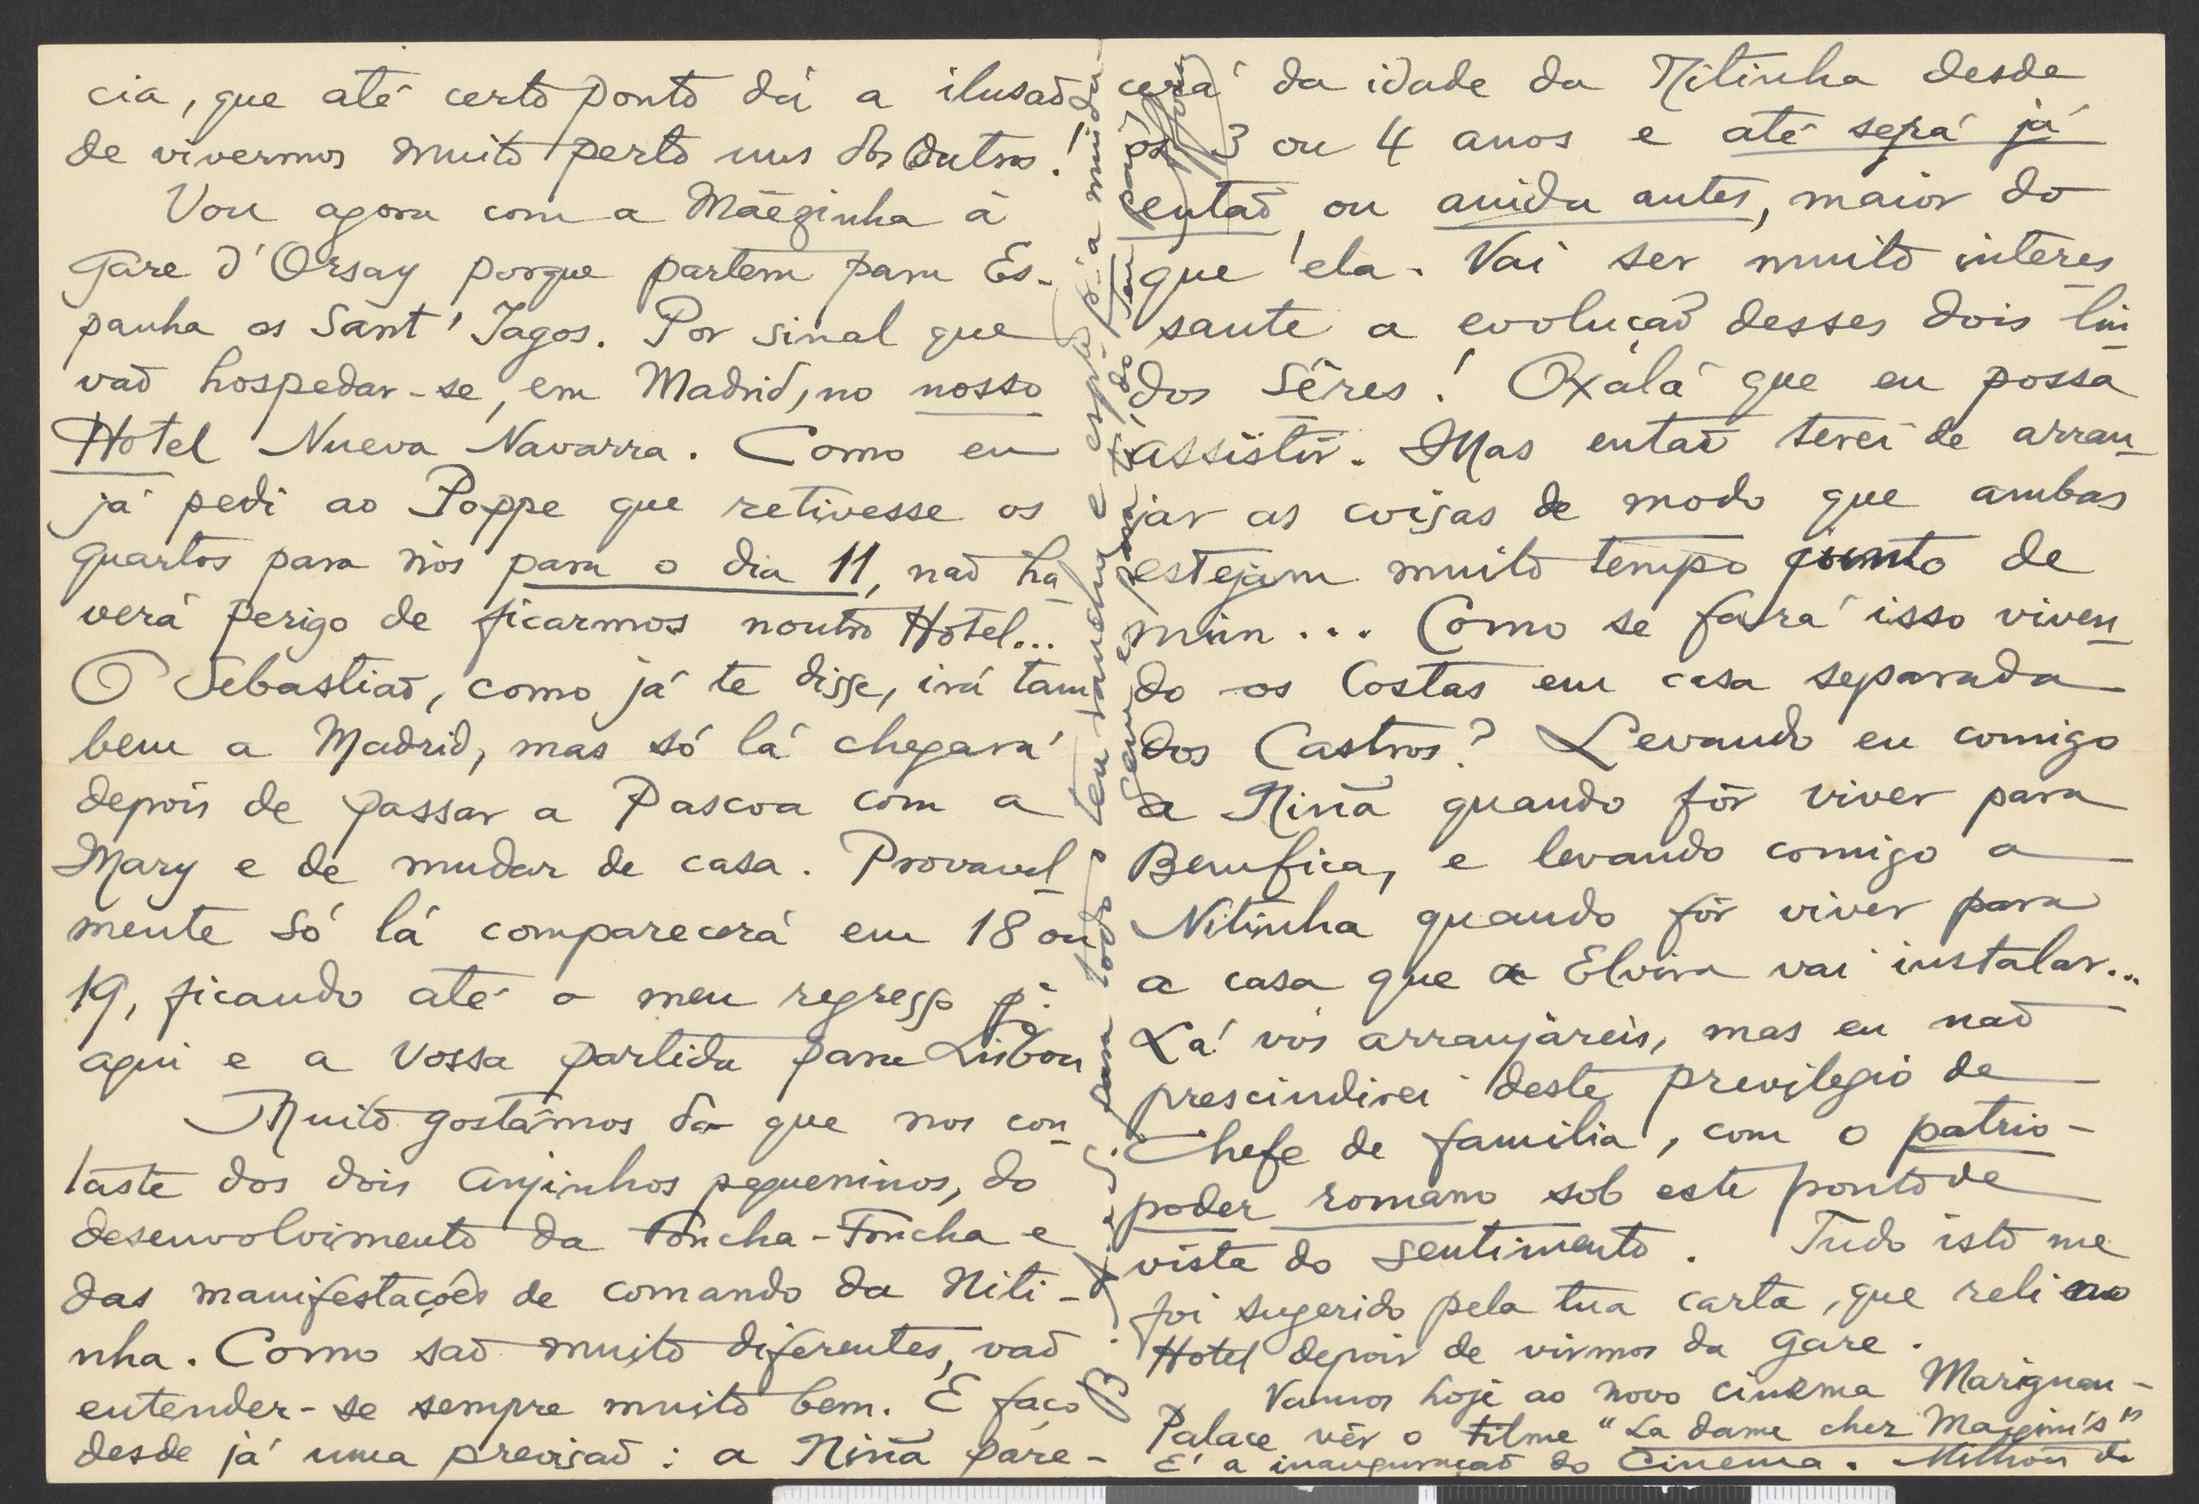 cia, que até certo ponto dá a ilusão
de vivermos muito perto uns dos outros!
Vou agora com a Mãezinha à
Gare d'Orsay porque partem para Es-
panha os Sant'Iagos. Por sinal que
vão hospedar-se, em Madrid, no nosso
Hotel Nueva Navarra. Como eu
já pedi ao Poppe que retivesse os
quartos para nós para o dia 11, não ha-
verá perigo de ficarmos noutro Hotel...
O Sebastião, como já te disse, irá tam
bem a Madrid, mas só lá chegará
depois de passar a Pascoa com a
Mary e de mudar de casa. Provavel-
mente só lá comparecerá em 18 ou
19, ficando até o meu regresso pª
aqui e a vossa partida para Lisboa
Muito gostámos do que nos con-
taste dos dois anjinhos pequeninos, do
desenvolvimento da Foncha-Foncha e
das manifestações de comando da Niti-
nha. Como são muito diferentes, vão
entender-se sempre muito bem. E faço
desde já uma previsão: a Niñã pare-
cerá da idade da Nitinha desde
os 3 ou 4 anos e até será já
então ou ainda antes, maior do
que ela. Vai ser muito interes-
sante a evolução desses dois lin-
dos Sêres! Oxalá que eu possa
assistir. Mas então terei de arran-
jar as coisas de modo que ambas
estejam muito tempo junto de
mim... Como se fará isso viven-
do os Costas em casa separada
dos Castros? Levando eu comigo
a Niñã quando fôr viver para
Bemfica, e levando comigo a
Nitinha quando fôr viver para
a casa que a Elvira vai instalar...
Lá vós arranjareis, mas eu não
prescindirei deste previlegio de
Chefe de familia, com o patrio-
poder romano sob este ponto de
vista do sentimento. Tudo isto me
foi sugerido pela tua carta, que reli no
Hotel depois de virmos da gare.
Vamos hoje ao novo cinema Marignan-
Palace vêr o filme "La dame chez Maxim's"
É a inauguração do Cinema. Milhões de
B. j. a. g. para todo o teu rancho e espª pª a miuda-
gem e para ti, do teu paizão